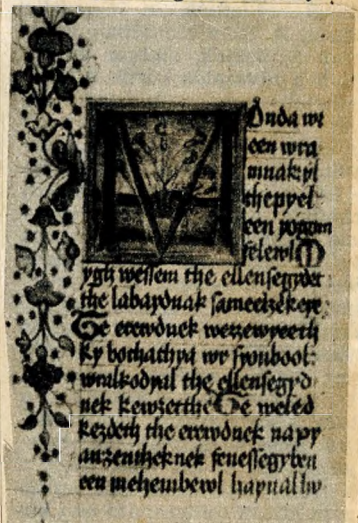 Monda wr
een wra
mnakyl
thepyel
een yogom
felewl M
ygh wessem the ellensegydet
the labaydnak sameelzekeye
Te erewdnek wezzewyeeth
ky bochathya wr syonbool:
wralkodyal the ellensegyd
nek kewzetthe Te weled
kezdeth the erewdnek napy
anzenthek nek fenessegyben
een mehembewl haynal